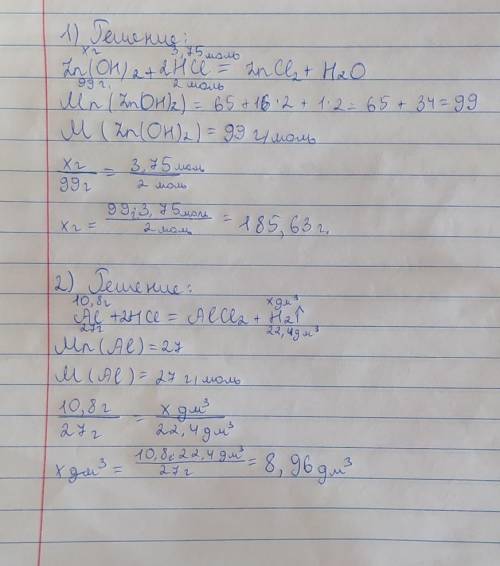 1) Решение:
xг 3,75 моль
Zn(OH)2 + 2HCl = ZnCl2 + H2O
99г. 2 моль
Mr(ZnOH)2) = 65 + 16·2 + 1·2 = 65 + 34 = 99
M(Zn(OH)2) = 99 г/моль
xг/99г = 3,75 моль/2 моль
xг = 99·3,75 моль/2 моль = 185,63 г.
2) Решение:
10,8г x дм³
Al + 2HCl = AlCl2 + H2↑
27г 22,4 дм³
Mr(Al) = 27
M(Al) = 27 г/моль
10,8г/27г = x дм³/22,4 дм³
x дм³ = 10,8·22,4 дм³/27г = 8,96 дм³